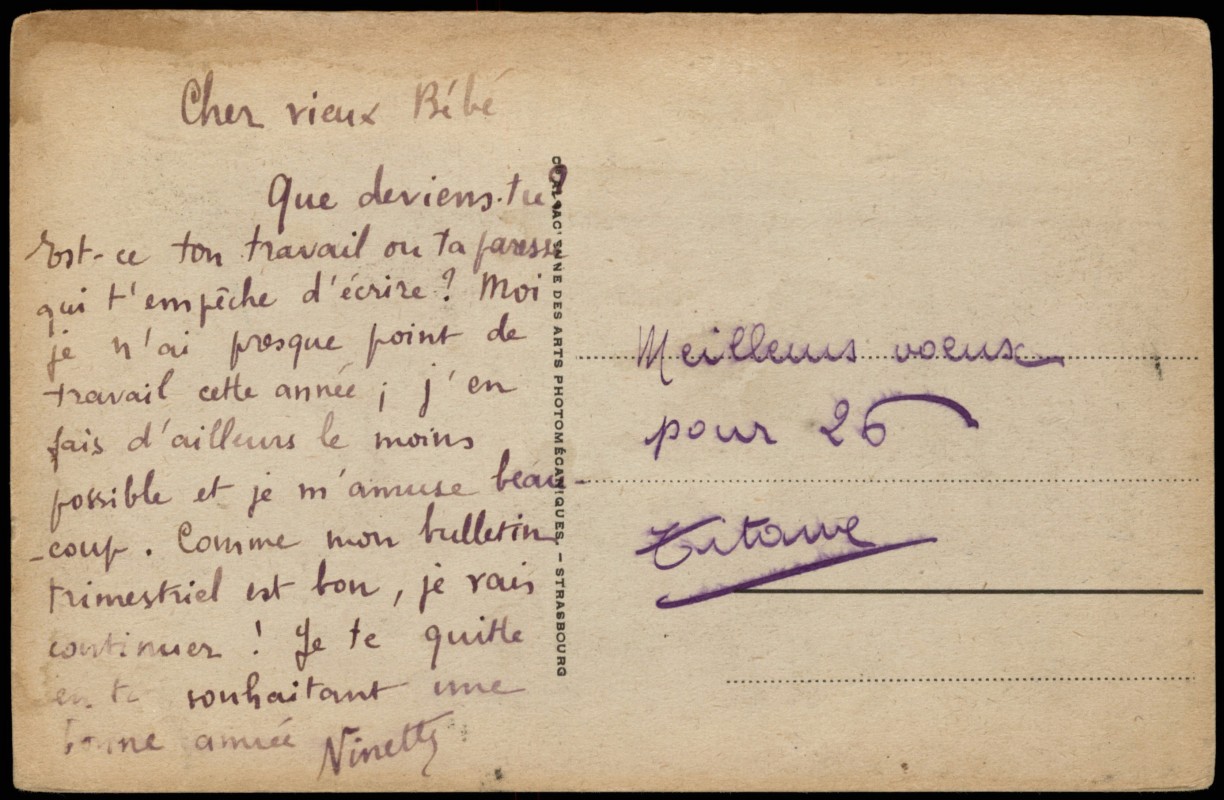 Cher vieux Bébé
Que deviens-tu ?
Est-ce ton travail ou ta paresse
qui t'empêche d'écrire ? Moi
je n'ai presque point de
travail cette année ; j'en
fais d'ailleurs le moins
possible et je m'amuse beau-
-coup. Comme mon bulletin
trimestriel est bon, je vais
continuer ! Je te quitte
en te souhaitant une
bonne année
Ninette
DES ARTS PHOTOMÉCANIQUES. – STRASBOURG
Meilleurs voeux
pour 26
Titane